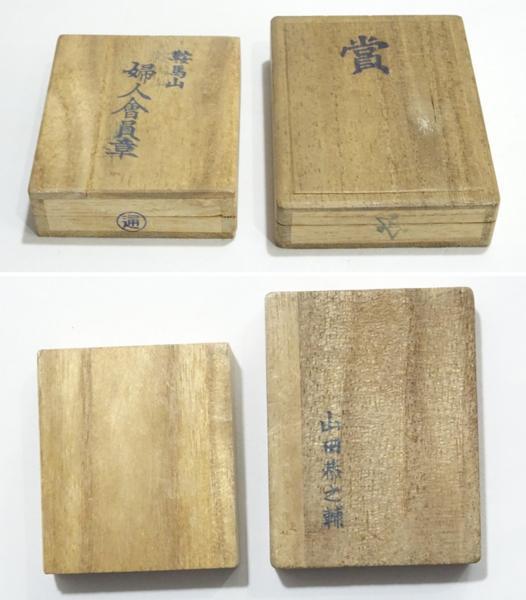 鞍馬山
婦人會員章
通
賞
山田恭之輔